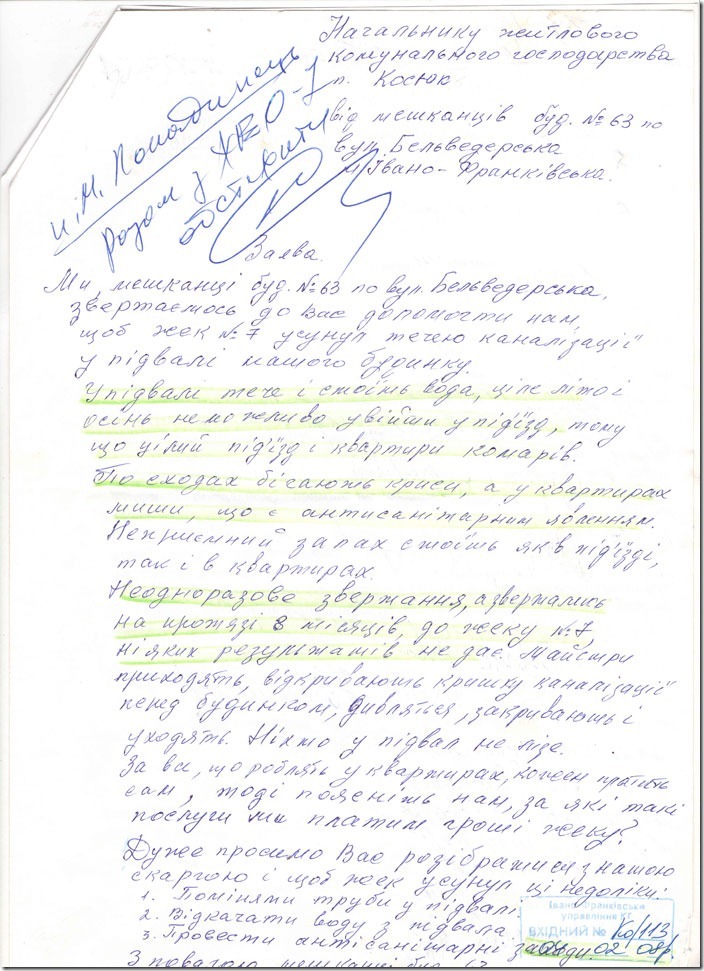 Начальнику житлового
комунального господарства
п. Косюк
від мешканців буд. №63 по
вул. Бельведерська
м. Івано-Франківська.
разом з ЖЕО-7
обстежити
Заява.
Ми, мешканці буд. №63 по вул. Бельведерська,
звертаємось до Вас допомогти нам,
щоб жек №7 усунул течею каналізації
у підвалі нашого будинку.
У підвалі тече і стоїть вода, ціле літо і
осінь неможливо увійти у під'їзд, тому
що цілий під'їзд і квартири комарів.
По сходах бігають криси, а у квартирах
миши, що є антисанітарним явленням.
Неприємний запах стоїть як в під'їзді,
так і в квартирах.
Неодноразове звертання, а звертались
на протязі 8 місяців, до жеку №7,
ніяких результатів не дає. Майстри
приходять, відкривають кришку каналізації
перед будинком, дивляться, закривають і
уходять. Ніхто у підвал не лізе.
За все, що роблять у квартирах, кожен платить
сам, тоді поясніть нам, за які такі
послуги ми платим гроші жеку?
Дуже просимо Вас розібратися з нашою
скаргою і щоб жек усунул ці недоліки:
1. Поміняти труби у підвалі.
2. Відкачати воду з підвала
3. Провести антісанітарні заходи.
Івано-Франківське
управління
ВХІДНИЙ №
02 08р.
З повагою мешканці буд. 63